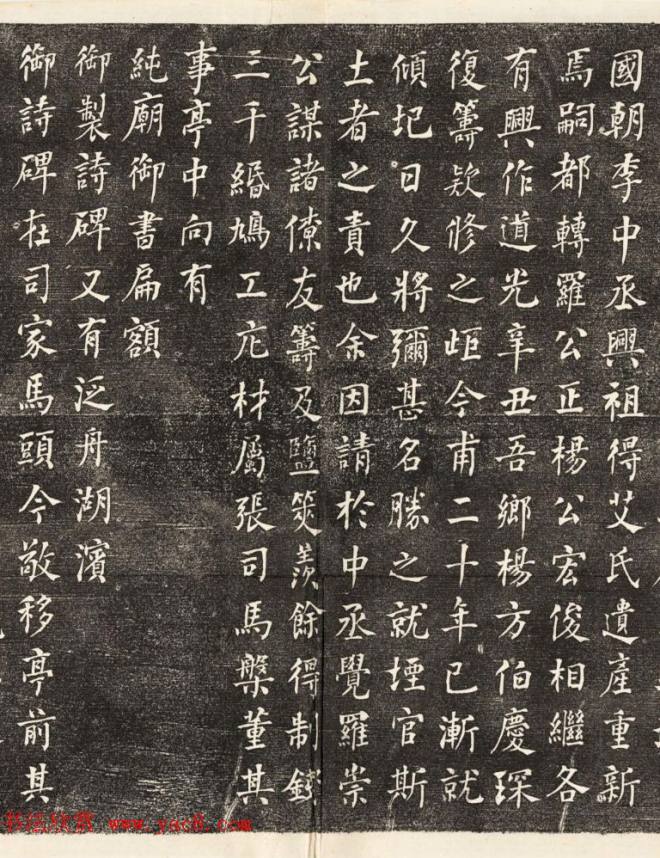 國朝李中丞興祖得艾氏遺產重新
焉嗣都轉羅公正楊公宏俊相繼各
有興作道光辛丑吾鄉楊方伯慶琛
復籌款修之歫今甫二十年已漸就
傾圮日久將彌甚名勝之就堙官斯
土者之責也余因請於中丞覺羅崇
公謀諸僚友籌及鹽筴羨餘得制錢
三千緡鳩工庀材屬張司馬槃董其
事亭中向有
純廟御書扁額
御製詩碑又有泛舟湖濱
御詩碑在司家馬頭今敬移亭前其
书法欣赏 www.yac8.com